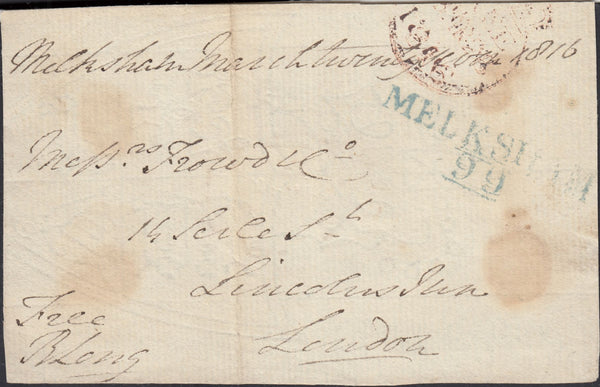 Melksham March twenty 1816
MELKSHAM
99
Messrs Frowd & Co
14 Serle St
Lincolns Inn
London
Free
R Long